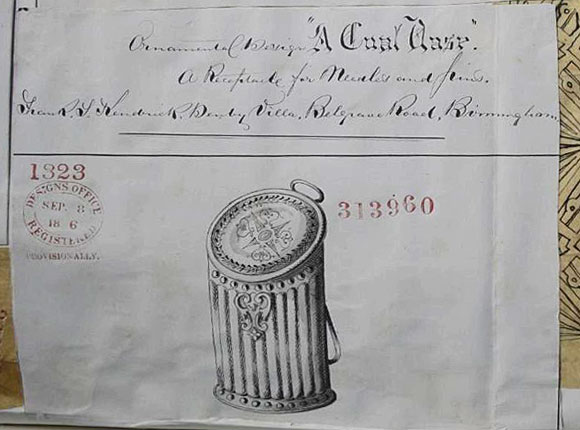 Ornamental Design "A Coal Vase".
A Receptacle for Needles and Pins.
Frank J Kendrick, Derby Villa, Belgrave Road, Birmingham,
1323
DESIGNS OFFICE
SEP. 8
18 6
REGISTERED
PROVISIONALLY.
313960